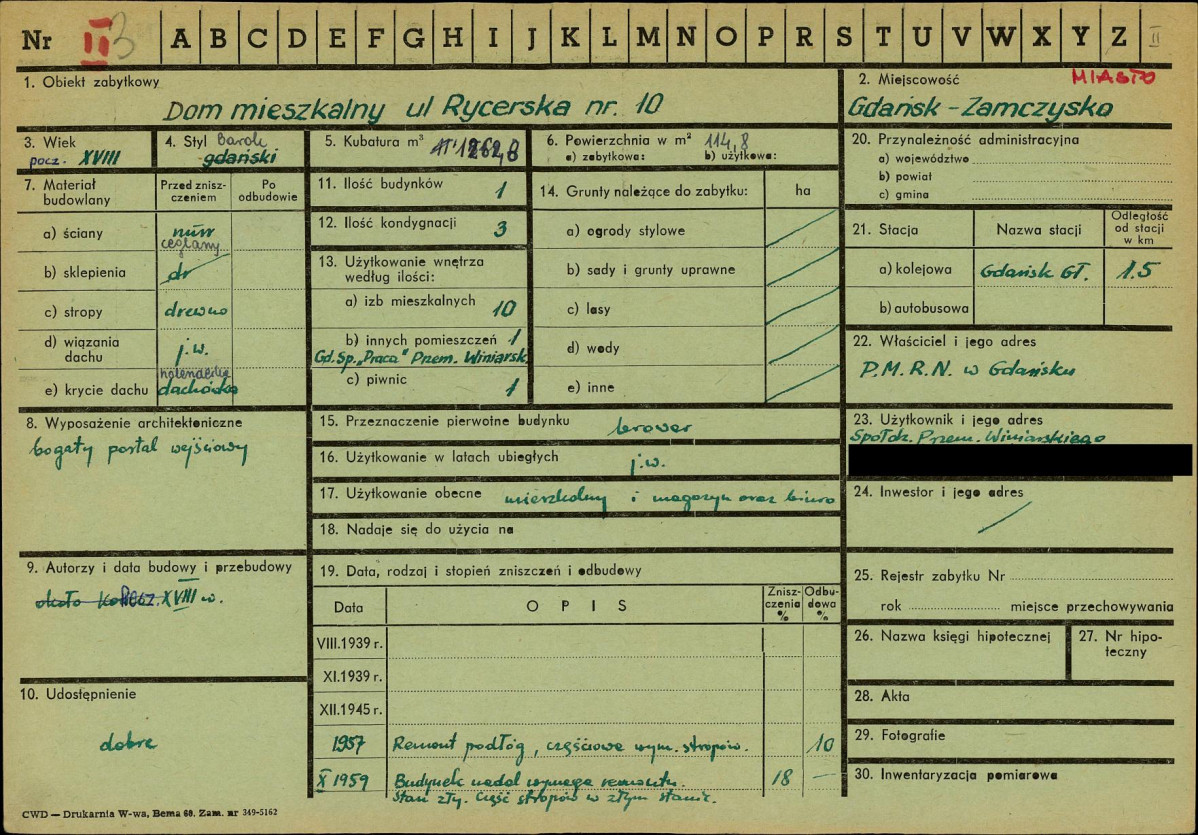 Nr II 3 A B C D E F G H I J K L M N O P R S T U V W X Y Z II
1. Obiekt zabytkowy
Dom mieszkalny ul Rycerska nr. 10
2. Miejscowość MIASTO
Gdańsk - Zamczysko
3. Wiek
pocz. XVIII
4. Styl Barok
gdański
5. Kubatura m³ 1262,8
6. Powierzchnia w m² 114,8
a) zabytkowa: b) użytkowa:
7. Materiał budowlany
Przed znisz-
czeniem
Po
odbudowie
a) ściany mur
ceglany
b) sklepienia dr
c) stropy drewno
d) wiązania
dachu j.w.
e) krycie dachu holenderka
dachówka
8. Wyposażenie architektoniczne
bogaty portal wejściowy
9. Autorzy i data budowy i przebudowy
około pocz. XVIII w.
10. Udostępnienie
dobre
11. Ilość budynków 1
12. Ilość kondygnacji 3
13. Użytkowanie wnętrza
według ilości:
a) izb mieszkalnych 10
b) innych pomieszczeń 1
Gd. Sp. „Praca" Przem. Winiarsk.
c) piwnic 1
14. Grunty należące do zabytku: ha
a) ogrody stylowe
b) sady i grunty uprawne
c) lasy
d) wody
e) inne
15. Przeznaczenie pierwotne budynku browar
16. Użytkowanie w latach ubiegłych j.w.
17. Użytkowanie obecne mieszkalny i magazyn oraz biuro
18. Nadaje się do użycia na
19. Data, rodzaj i stopień zniszczeń i odbudowy
Data OPIS Znisz-
czenia
% Odbu-
dowa
%
VIII.1939 r.
XI.1939 r.
XII.1945 r.
1957 Remont podłóg, częściowe wym. stropów. 10
X 1959 Budynek nadal wymaga remontu. 18 —
Stan zły. Część stropów w złym stanie.
20. Przynależność administracyjna
a) województwo
b) powiat
c) gmina
21. Stacja Nazwa stacji Odległość
od stacji
w km
a) kolejowa Gdańsk Gł. 1.5
b) autobusowa
22. Właściciel i jego adres
P.M.R.N. w Gdańsku
23. Użytkownik i jego adres
Spółdz. Przem. Winiarskiego
24. Inwestor i jego adres
25. Rejestr zabytku Nr
rok miejsce przechowywania
26. Nazwa księgi hipotecznej
27. Nr hipo-
teczny
28. Akta
29. Fotografie
30. Inwentaryzacja pomiarowa
CWD — Drukarnia W-wa, Bema 60. Zam. nr 349-5162